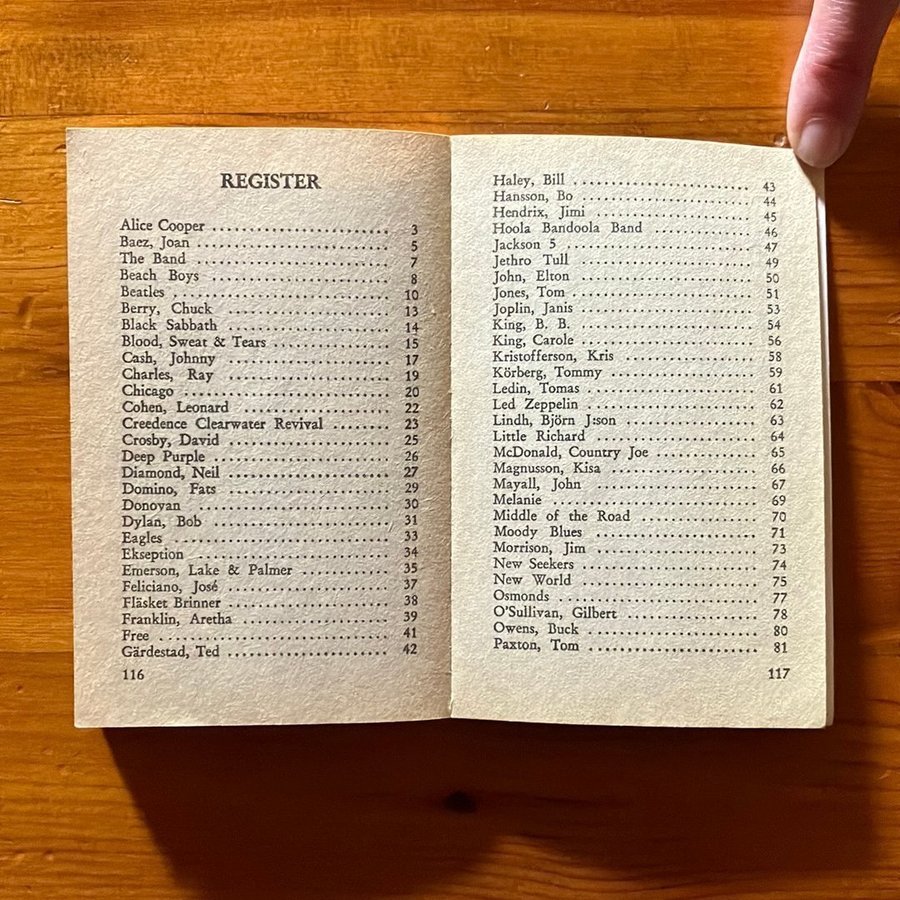 REGISTER
Alice Cooper ........................ 3
Baez, Joan ........................ 5
The Band ........................ 7
Beach Boys ........................ 8
Beatles ........................ 10
Berry, Chuck ........................ 13
Black Sabbath ........................ 14
Blood, Sweat & Tears ........................ 15
Cash, Johnny ........................ 17
Charles, Ray ........................ 19
Chicago ........................ 20
Cohen, Leonard ........................ 22
Creedence Clearwater Revival ........................ 23
Crosby, David ........................ 25
Deep Purple ........................ 26
Diamond, Neil ........................ 27
Domino, Fats ........................ 29
Donovan ........................ 30
Dylan, Bob ........................ 31
Eagles ........................ 33
Ekseption ........................ 34
Emerson, Lake & Palmer ........................ 35
Feliciano, José ........................ 37
Fläsket Brinner ........................ 38
Franklin, Aretha ........................ 39
Free ........................ 41
Gärdestad, Ted ........................ 42
116
Haley, Bill ........................ 43
Hansson, Bo ........................ 44
Hendrix, Jimi ........................ 45
Hoola Bandoola Band ........................ 46
Jackson 5 ........................ 47
Jethro Tull ........................ 49
John, Elton ........................ 50
Jones, Tom ........................ 51
Joplin, Janis ........................ 53
King, B. B. ........................ 54
King, Carole ........................ 56
Kristofferson, Kris ........................ 58
Körberg, Tommy ........................ 59
Ledin, Tomas ........................ 61
Led Zeppelin ........................ 62
Lindh, Björn J:son ........................ 63
Little Richard ........................ 64
McDonald, Country Joe ........................ 65
Magnusson, Kisa ........................ 66
Mayall, John ........................ 67
Melanie ........................ 69
Middle of the Road ........................ 70
Moody Blues ........................ 71
Morrison, Jim ........................ 73
New Seekers ........................ 74
New World ........................ 75
Osmonds ........................ 77
O'Sullivan, Gilbert ........................ 78
Owens, Buck ........................ 80
Paxton, Tom ........................ 81
117